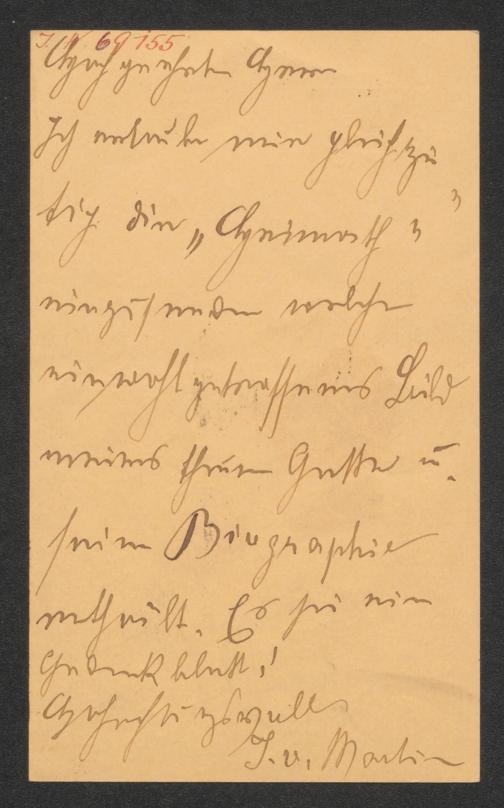 I. N. 69155
Hochgeehrter Herr
Ich erlaube mir gleichzei
tig die „Heimath"
einzusenden welche
ein wohlgetroffenes Bild
meines theuren Gatten u.
seine Biographie
enthält. Es sei ein
Gedenkblatt!
Hochachtungsvoll
v. Martin